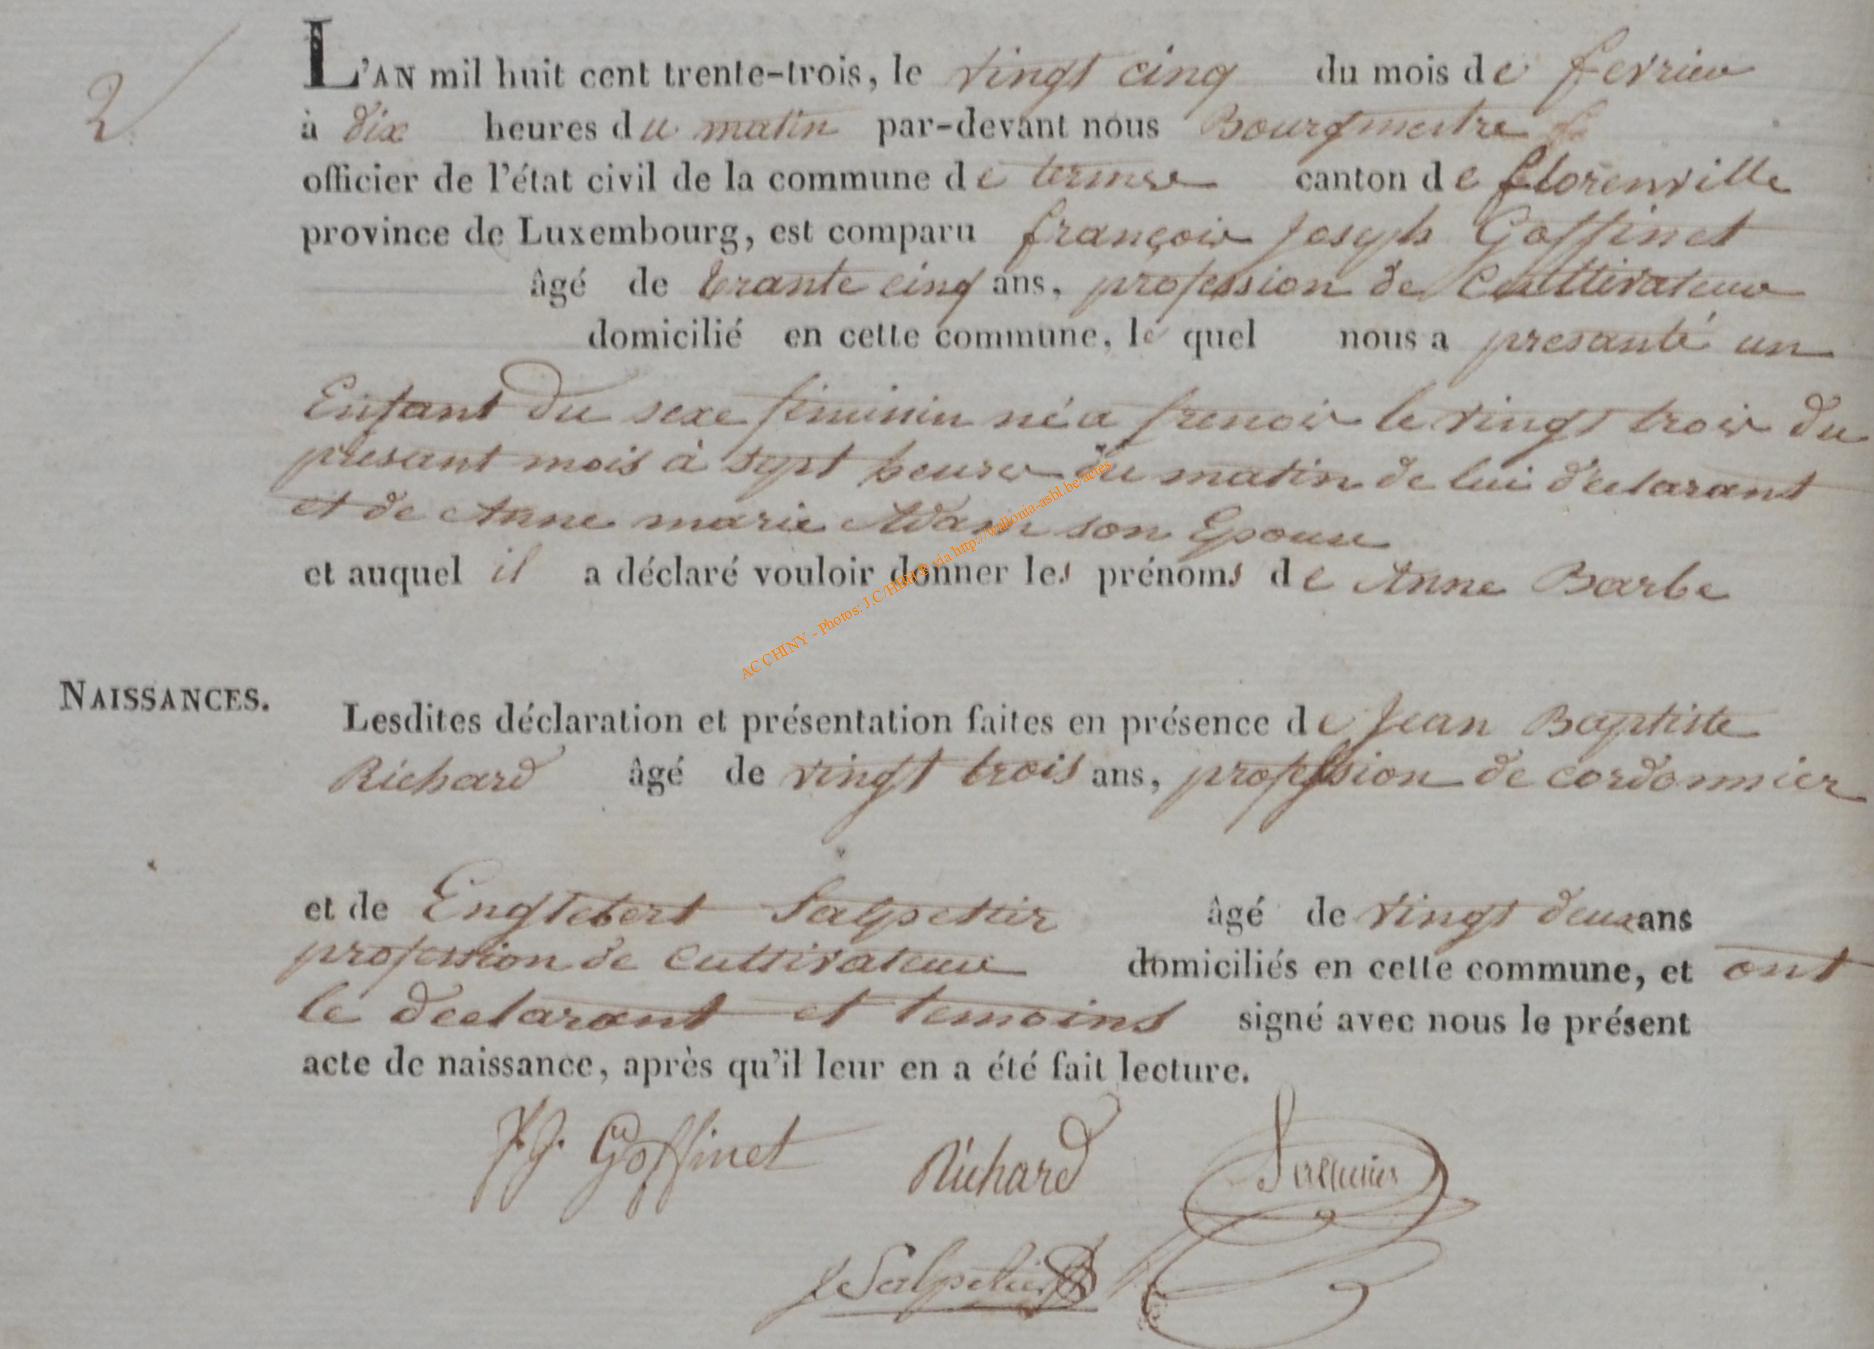 2
L'AN mil huit cent trente-trois, le vingt cinq du mois de fevrier
à dix heures du matin par-devant nous Bourgmestre
officier de l'état civil de la commune de termes canton de florenville
province de Luxembourg, est comparu françois Joseph Goffinet
âgé de trante cinq ans, profession de Culttivateur
domicilié en cette commune, le quel nous a presanté un
Enfant du sexe feminin né a frenois le vingt trois du
présant mois à sept heures du matin de lui déclarant
et de Anne marie Adam son Epouse
et auquel il a déclaré vouloir donner les prénoms de Anne Barbe
NAISSANCES.
Lesdites déclaration et présentation faites en présence de Jean Baptiste
Richard âgé de vingt trois ans, profession de cordonnier
et de Englebert Salpettier âgé de vingt deux ans
profession de Culttivateur domiciliés en cette commune, et ont
le declarant et temoins signé avec nous le présent
acte de naissance, après qu'il leur en a été fait lecture.
f.J. Goffinet Richard
Salpetier
AC CHINY - Photos: J.C/HIBLE via http://wallonia-asbl.be/actes